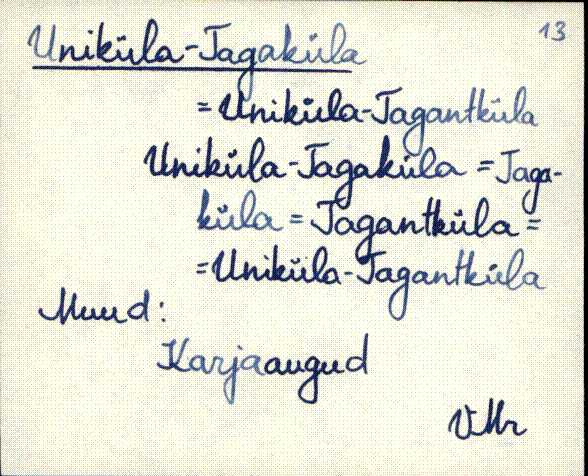 13
Uniküla-Tagaküla
= Uniküla-Tagantküla
Uniküla-Tagaküla = Taga-
küla = Tagantküla =
= Uniküla-Tagantküla
Muud:
Karjaaugud
VMr